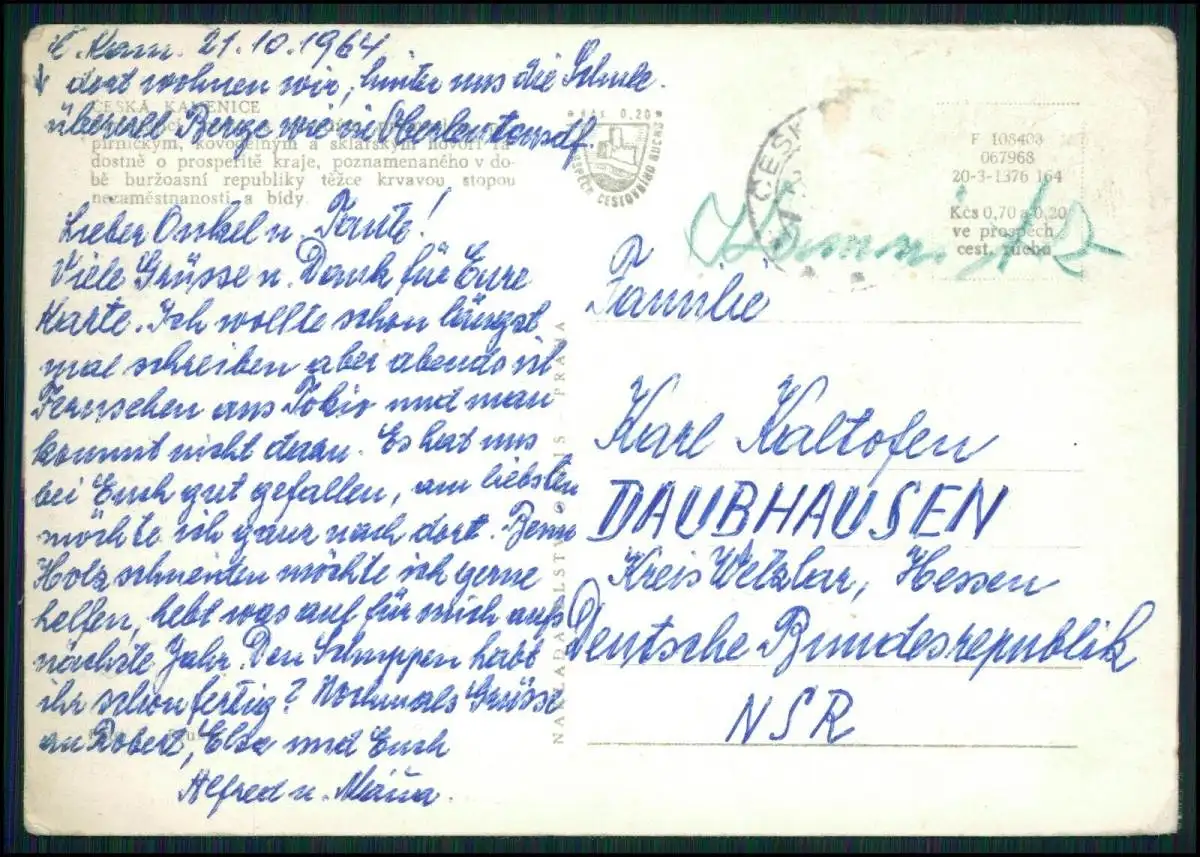 Č. Kam. 21.10.1964
dort wohnen wir, hinter uns die Schule.
ČESKÁ KAMENICE
überall Berge wie in Oberleutensdf.
pírnickým, kovodělným a sklářským hovoří ra-
dostně o prosperitě kraje, poznamenaného v do-
bě buržoasní republiky těžce krvavou stopou
nezaměstnanosti a bídy.
Lieber Onkel u. Tante!
Viele Grüsse u. Dank für Eure
Karte. Ich wollte schon längst
mal schreiben aber abends ist
Fernsehen aus Tokio und man
kommt nicht daran. Es hat uns
bei Euch gut gefallen, am liebsten
möchte ich ganz nach dort. Beim
Holz schneiden möchte ich gerne
helfen, hebt was auf für mich aufs
nächste Jahr. Den Schuppen habt
ihr schon fertig? Nochmals Grüsse
an Robert, Elsa und Euch
Alfred u. Máňa.
NAKLADATELSTVÍ ORBIS PRAHA
KČS 0,20
VE PROSPĚCH CESTOVNÍHO RUCHU
ČESK
F 108403
067968
20-3-1376 164
Kčs 0,70 a 0,20
ve prospěch
cest. ruchu
Familie
Karl Kaltofen
DAUBHAUSEN
Kreis Wetzlar, Hessen
Deutsche Bundesrepublik
NSR